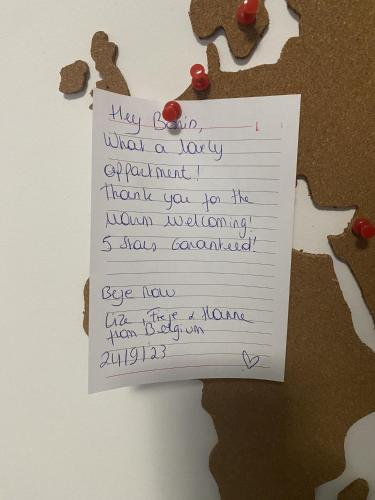 Hey
What a lovly
appartment!
Thank you for the
warm welcoming!
5 stars Garanteed!
Beye now
Lize, Freje & Hanne
from Belgium
24/9/23